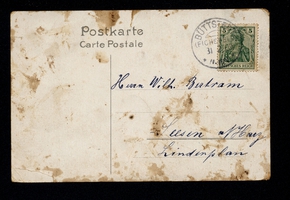 Postkarte
Carte Postale
BUTTST
5
Herrn Wilh. Bertram
Seesen a/Harz
Lindenplan